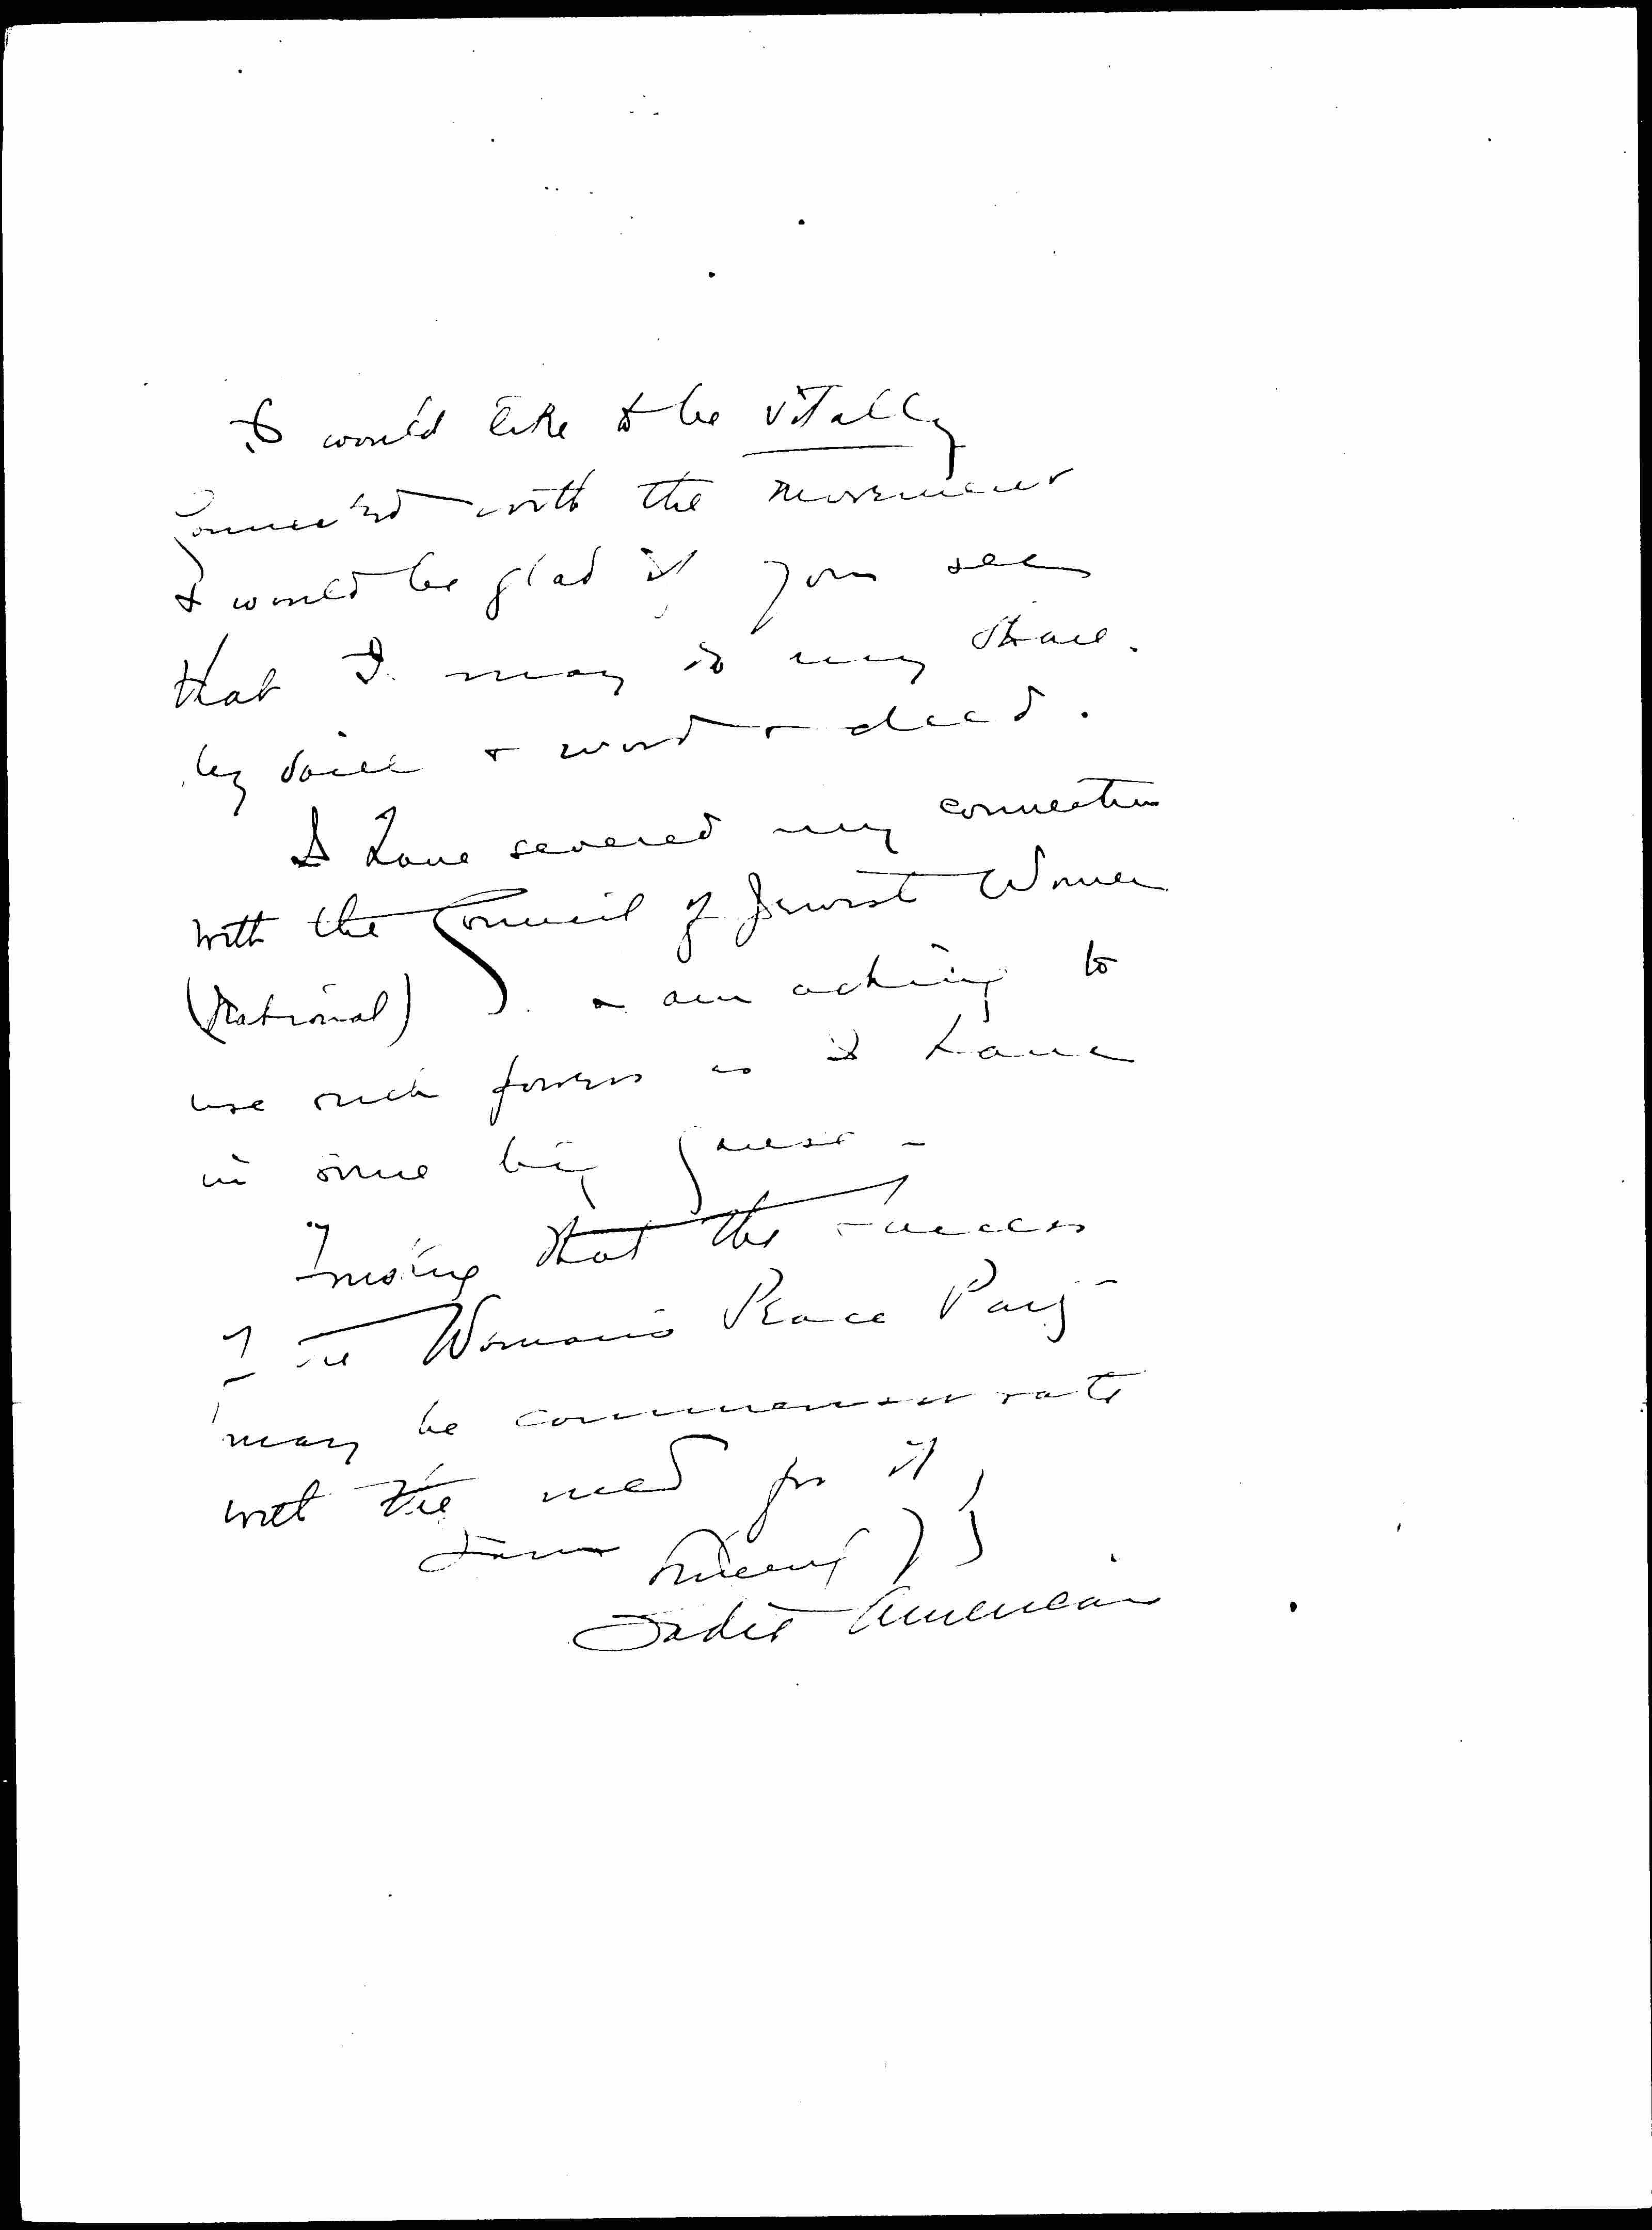 I would like to be vitally
Connected with the movement
& would be glad if you see
that I may do my share.
by voice & word & deed.
I have severed my connection
with the Council of Jewish Women
(National) & am aching to
use such powers as I have
in some big cause –
Trusting that the success
of the Woman's Peace Party
may be commensurate
with the need for it
Yours Sincerely
Sadie American